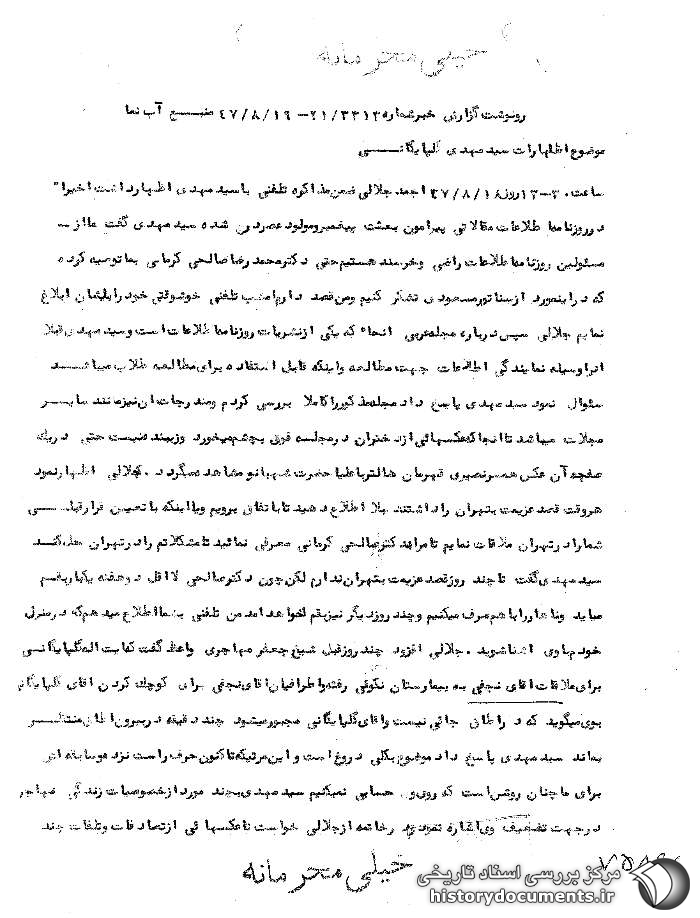 خیلی محرمانه
رونوشت گزارش خبر شماره ۲۱/۳۳۱۲ – ۴۷/۸/۱۶ منبع آب نما
موضوع اظهارات سید مهدی گلپایگانی
ساعت ۱۳۰۰ روز ۴۷/۸/۱۶ احمد جلالی ضمن مذاکره تلفنی با سید مهدی اظهار داشت اخیرا"
در روزنامه اطلاعات مقالاتی پیرامون بعثت پیغمبر و مولود عصر درج شده سید مهدی گفت ما از
مسئولین روزنامه اطلاعات راضی و خرسند هستیم حتی دکتر محمد رضا صالحی کرمانی بما توصیه کرده
که در اینمورد از سناتور مسعودی تشکر کنیم و من قصد دارم امشب تلفنی خوشوقتی خود را بایشان ابلاغ
نمایم جلالی سپس درباره مجله عربی که یکی از نشریات روزنامه اطلاعات است و سید مهدی قبلا
آنرا وسیله نمایندگی اطلاعات جهت مطالعه و اینکه قابل استفاده برای مطالعه طلاب میباشد
سئوال نمود سید مهدی پاسخ داد مجله مذکور را کاملا بررسی کردم و مندرجات آن نیز مانند سایر
مجلات میباشد تا آنجا که عکسهائی از دختران در مجله فوق بچشم میخورد و زیبنده نیست حتی در یک
صفحه آن عکس همسر نصیری قهرمان هالتر با علیا حضرت شهبانو مشاهده میگردد . جلالی اظهار نمود
هر وقت قصد عزیمت بتهران را داشتند قبلا اطلاع دهید تا باتفاق برویم و یا اینکه با تعیین قرار قبلی
شما را در تهران ملاقات نمایم تا مرا بدکتر صالحی کرمانی معرفی نمائید تا مشکلاتم را در تهران حل کند
سید مهدی گفت تا چند روز قصد عزیمت بتهران ندارم لکن چون دکتر صالحی لااقل دو هفته یکبار بقم
میاید و ناهار را با هم صرف میکنیم و چند روز دیگر نیز بقم خواهد آمد من تلفنی بشما اطلاع میدهم که در منزل
خودم با وی آشنا شوید . جلالی افزود چند روز قبل شیخ جعفر مهاجری واعظ گفت آیت اله گلپایگانی
برای ملاقات آقای نجفی به بیمارستان نکوئی رفته و اطرافیان آقای نجفی برای کوچک کردن آقای گلپایگانی
بوی میگوید که در اطاق جائی نیست و آقای گلپایگانی مجبور میشود چند دقیقه در بیرون اطاق منتظر
بماند سید مهدی پاسخ داد موضوع بکلی دروغ است و این مرتیکه تاکنون حرف راست نزده و سابقه اش
برای ما چنان روشن است که روی وی حسابی نمیکنیم سید مهدی بچند مورد از خصوصیات زندگی مهاجری
در جهت تضعیف وی اشاره نمود و در خاتمه از جلالی خواست تا عکسهائی از تصادفات و تلفات چند
خیلی محرمانه
مرکز بررسی اسناد تاریخی
historydocuments.ir